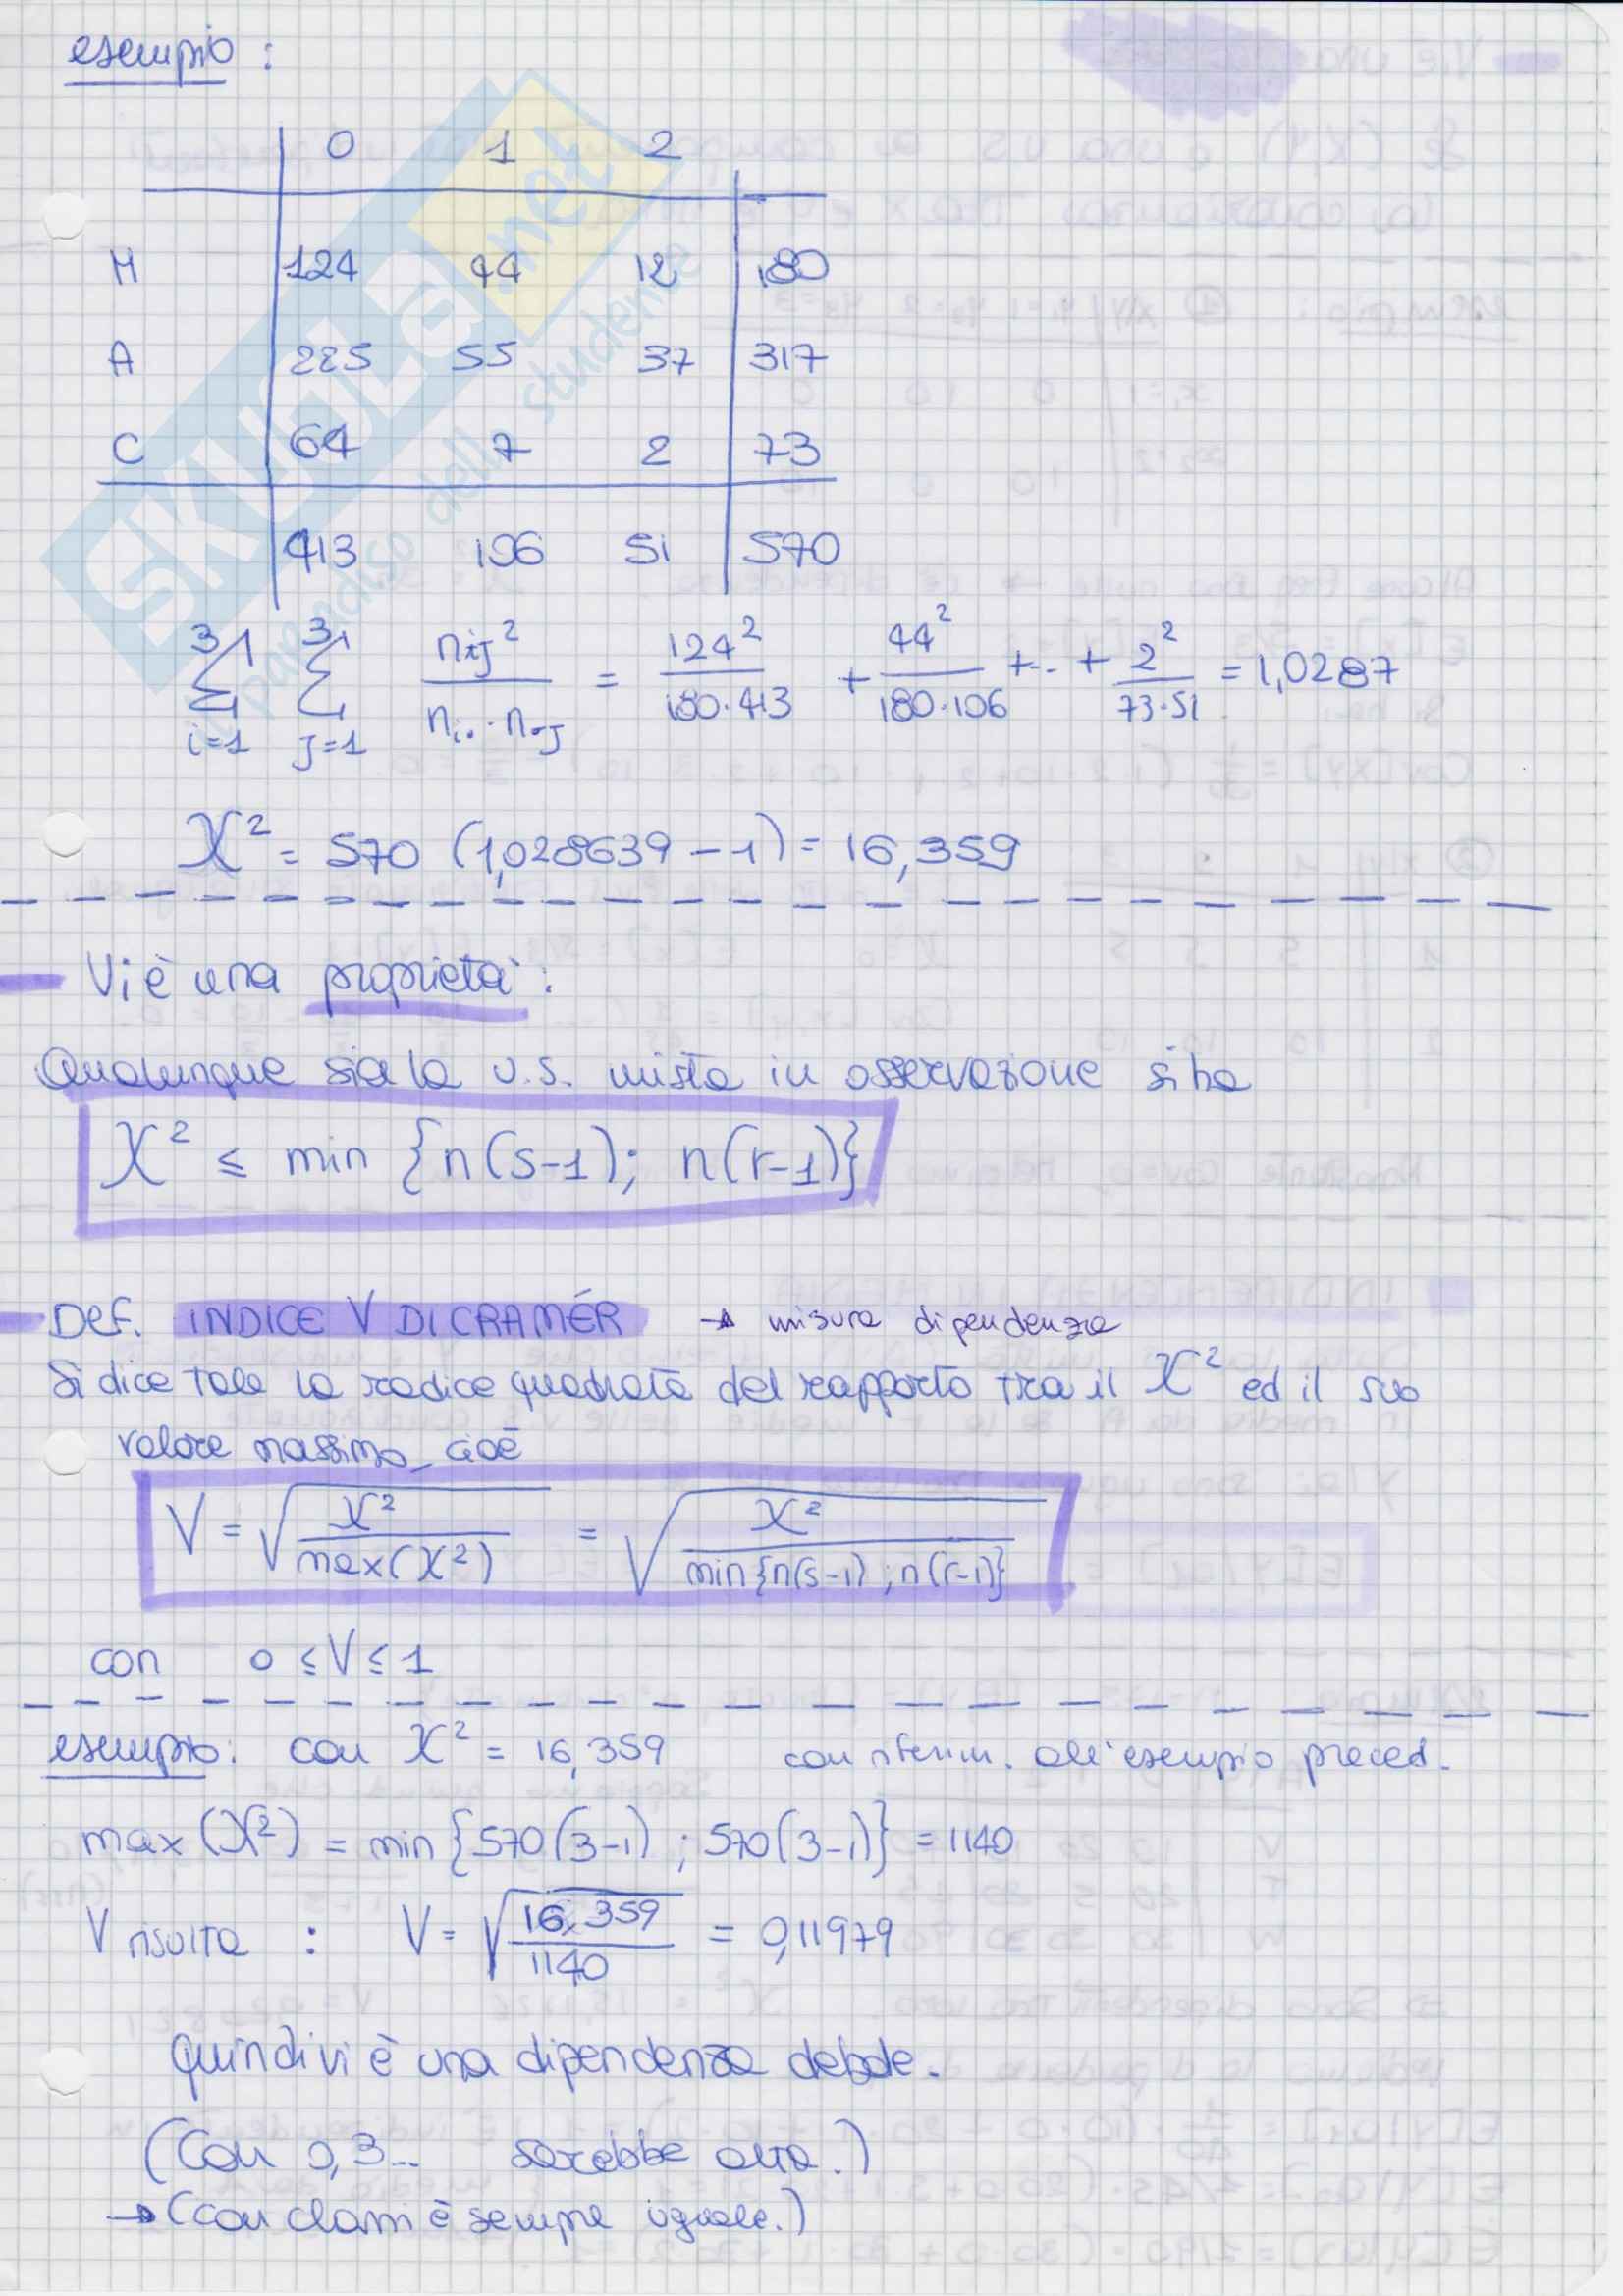 esempio :
0 1 2
H 124 44 12 180
A 225 55 37 317
C 64 7 2 73
413 106 51 570
3 3
∑ ∑ nij² / ni. · n.j = 124² / 180·413 + 44² / 180·106 + .. + 2² / 73·51 = 1,0287
i=1 j=1
X² = 570 (1,028639 − 1) = 16,359
– Vi è una proprietà :
Qualunque sia la v.s. mista in osservazione si ha
X² ≤ min {n(s−1); n(r−1)}
– Def. INDICE V DI CRAMÉR → misura dipendenza
Si dice tale la radice quadrata del rapporto tra il X² ed il suo
valore massimo, cioè
V = √(X² / max(X²)) = √(X² / min{n(s−1) ; n(r−1)})
con 0 ≤ V ≤ 1
esempio: con X² = 16,359 con riferim. all'esempio preced.
max (X²) = min {570(3−1) ; 570(3−1)} = 1140
V risulta : V = √(16,359 / 1140) = 0,11979
quindi vi è una dipendenza debole.
(Con 0,3... sarebbe alta.)
→ (con classi è sempre uguale.)
SKUOLA.net
il paradiso dello studente